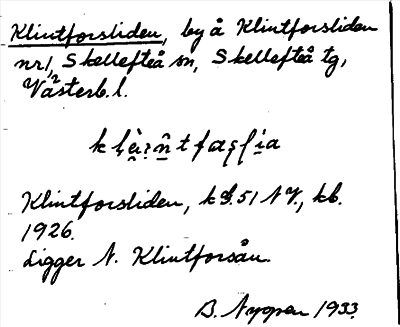 Klintforsliden, by å Klintforsliden
nr 1, 2 Skellefteå sn, Skellefteå tg,
Västerb. l.
Klintforsliden, kb. 51 NV., kb.
1926.
Ligger N. Klintforsån.
B. Nygren 1933.